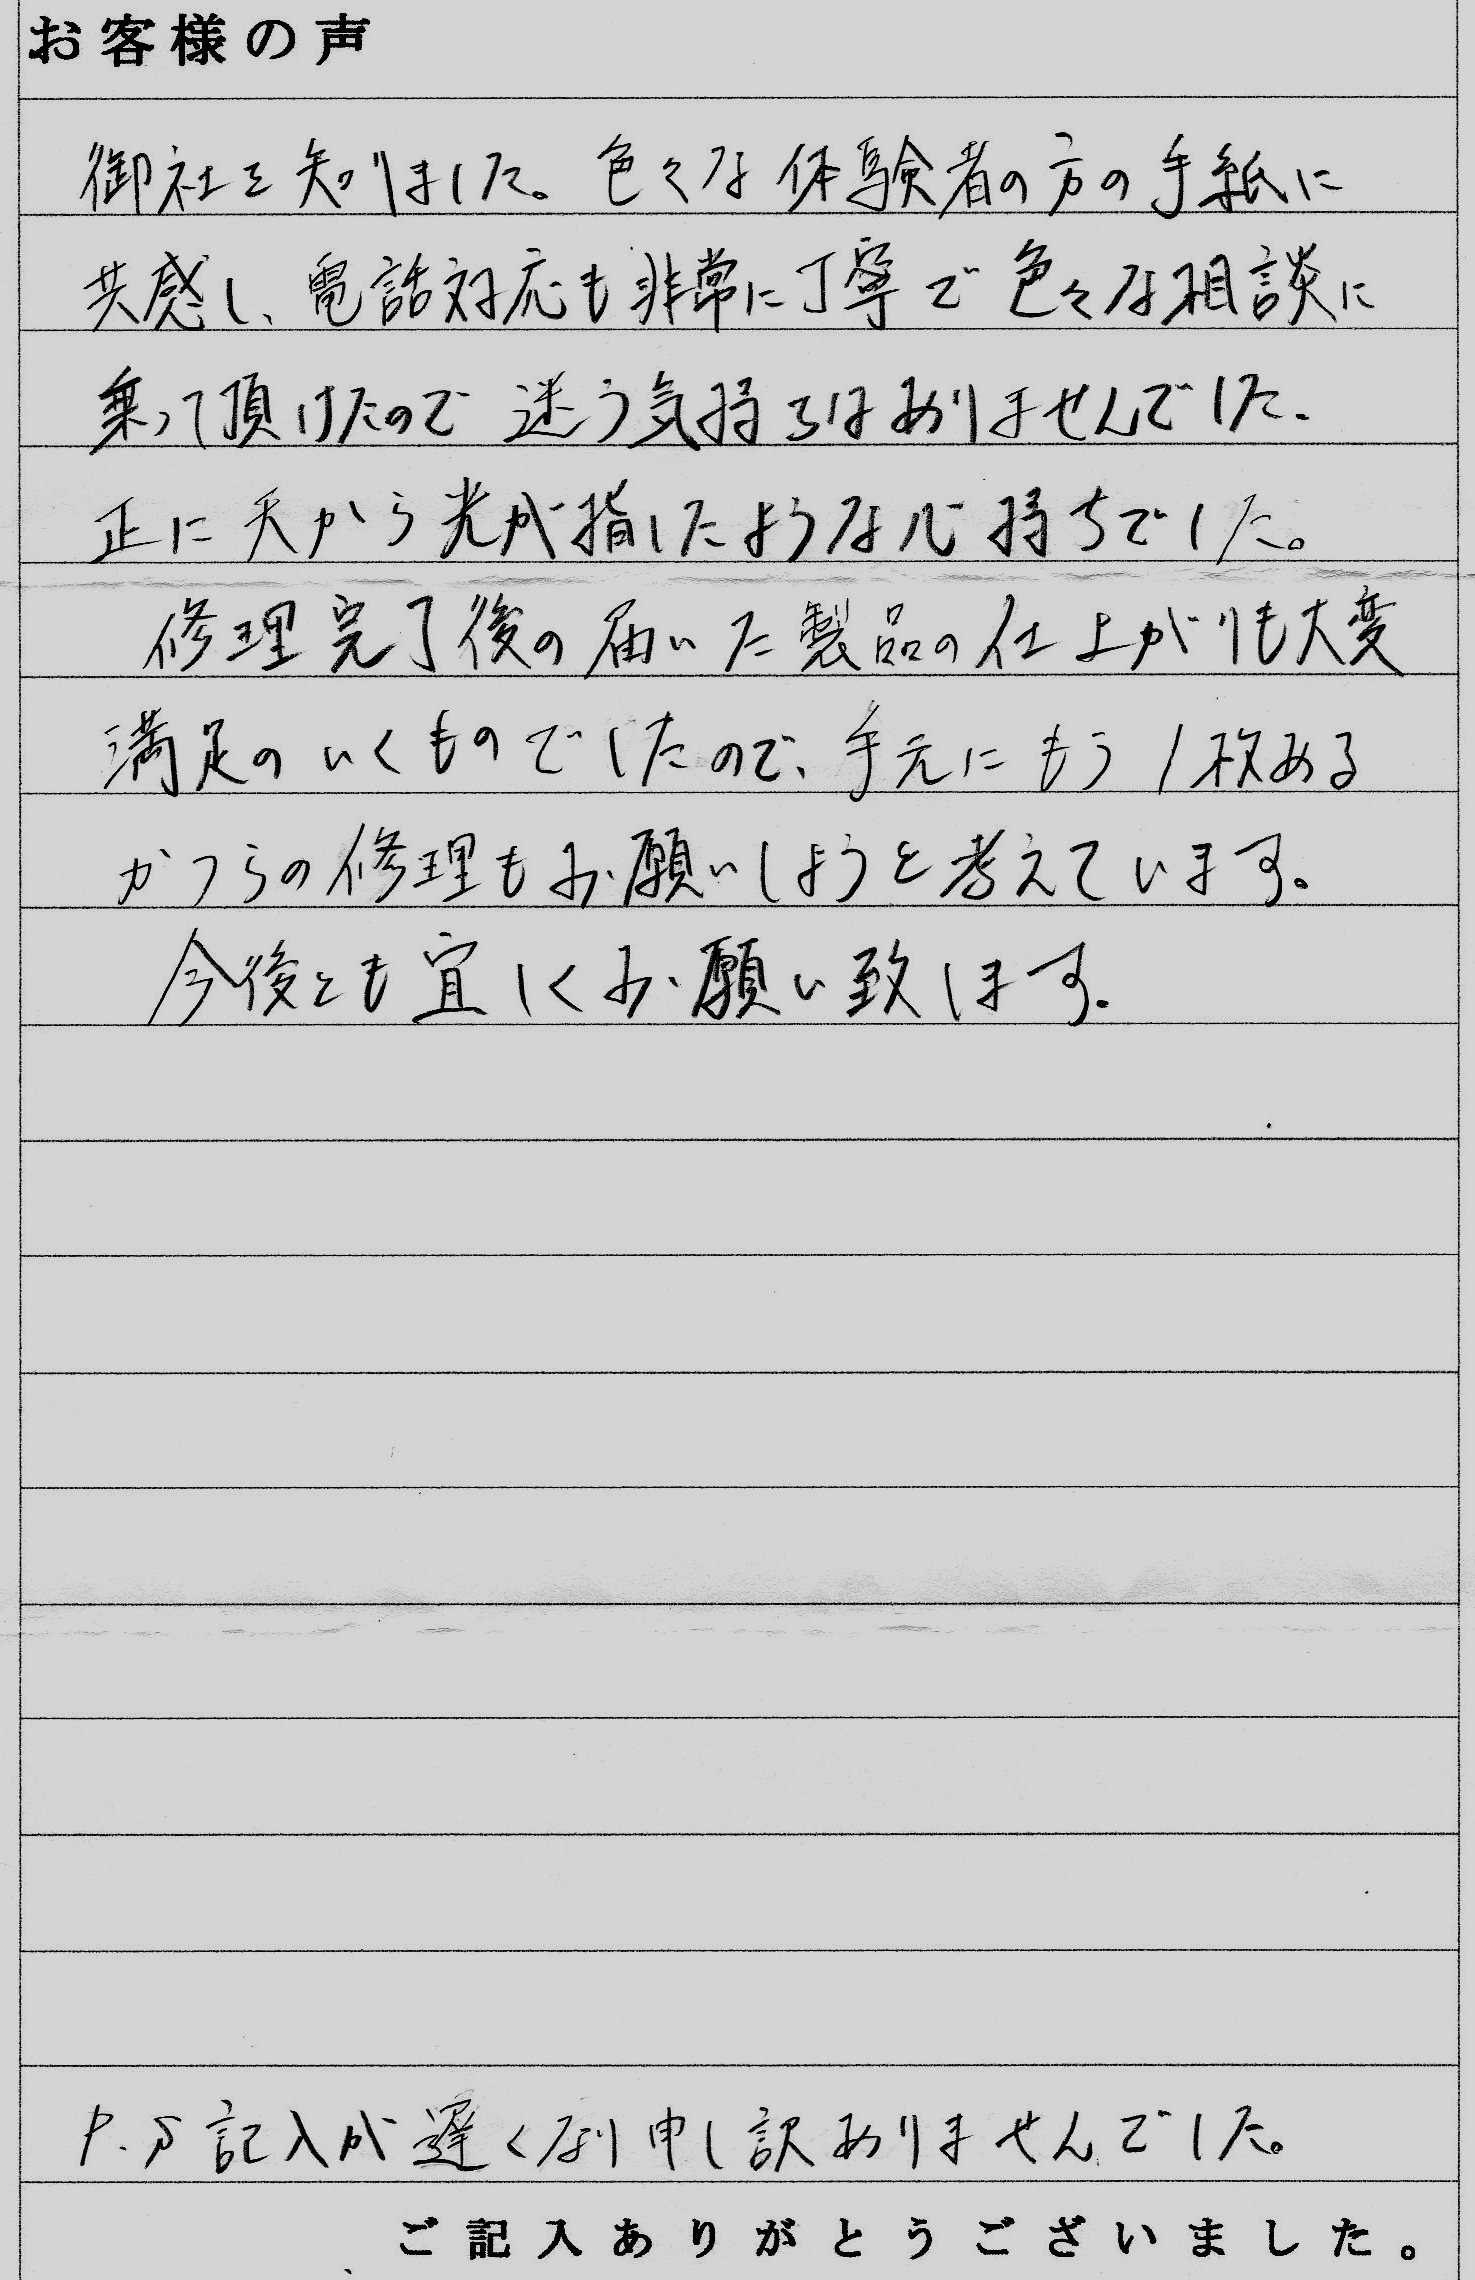 お客様の声
御社を知りました。色々な体験者の方の手紙に
共感し、電話対応も非常に丁寧で色々な相談に
乗って頂けたので迷う気持ちはありませんでした。
正に天から光が指したような心持ちでした。
修理完了後の届いた製品の仕上がりも大変
満足のいくものでしたので、手元にもう1枚ある
かつらの修理もお願いしようと考えています。
今後とも宜しくお願い致します。
P.S記入が遅くなり申し訳ありませんでした。
ご記入ありがとうございました。